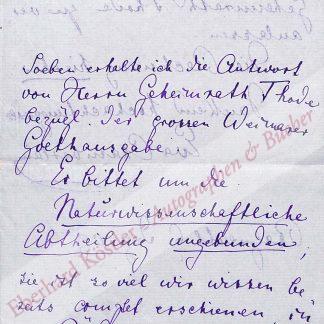 Soeben erhalte ich die Antwort
von Herrn Geheimrath Thode
bezügl. der grossen Weimarer
Goethausgabe.
Er bittet um die
Naturwissenschaftliche
Abtheilung ungebunden,
sie ist so viel wir wissen be-
reits complet erschienen, in
Eberhard Köstler Autographen & Bücher